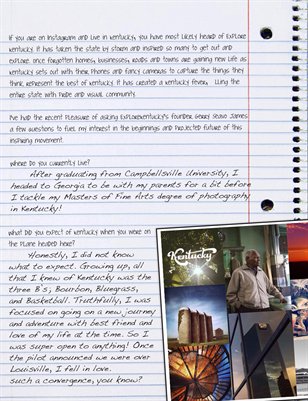 IF you are on Instagram and live in Kentucky, you have most likely heard of Explore
Kentucky. It has taken the state by storm and inspired so many to get out and
explore. Once forgotten homes, businesses, roads and towns are gaining new life as
Kentucky sets out with their phones and fancy cameras to capture the things they
think represent the best of Kentucky. It has created a Kentucky fever, uling the
entire state with pride and visual community.
I've had the recent pleasure of asking ExploreKentucky's founder Gerry Seavo James
a few questions to fuel my interest in the beginnings and projected future of this
inspiring movement.
Where do you currently live?
After graduating from Campbellsville University, I
headed to Georgia to be with my parents for a bit before
I tackle my Masters of Fine Arts degree of photography
in Kentucky!
What did you expect of Kentucky when you were on
the plane headed here?
Honestly, I did not know
what to expect. Growing up, all
that I knew of Kentucky was the
three B's; Bourbon, Bluegrass,
and Basketball. Truthfully, I was
focused on going on a new journey
and adventure with best friend and
love of my life at the time. So I
was super open to anything! Once
the pilot announced we were over
Louisville, I fell in love.
such a convergence, you know?
Kentucky